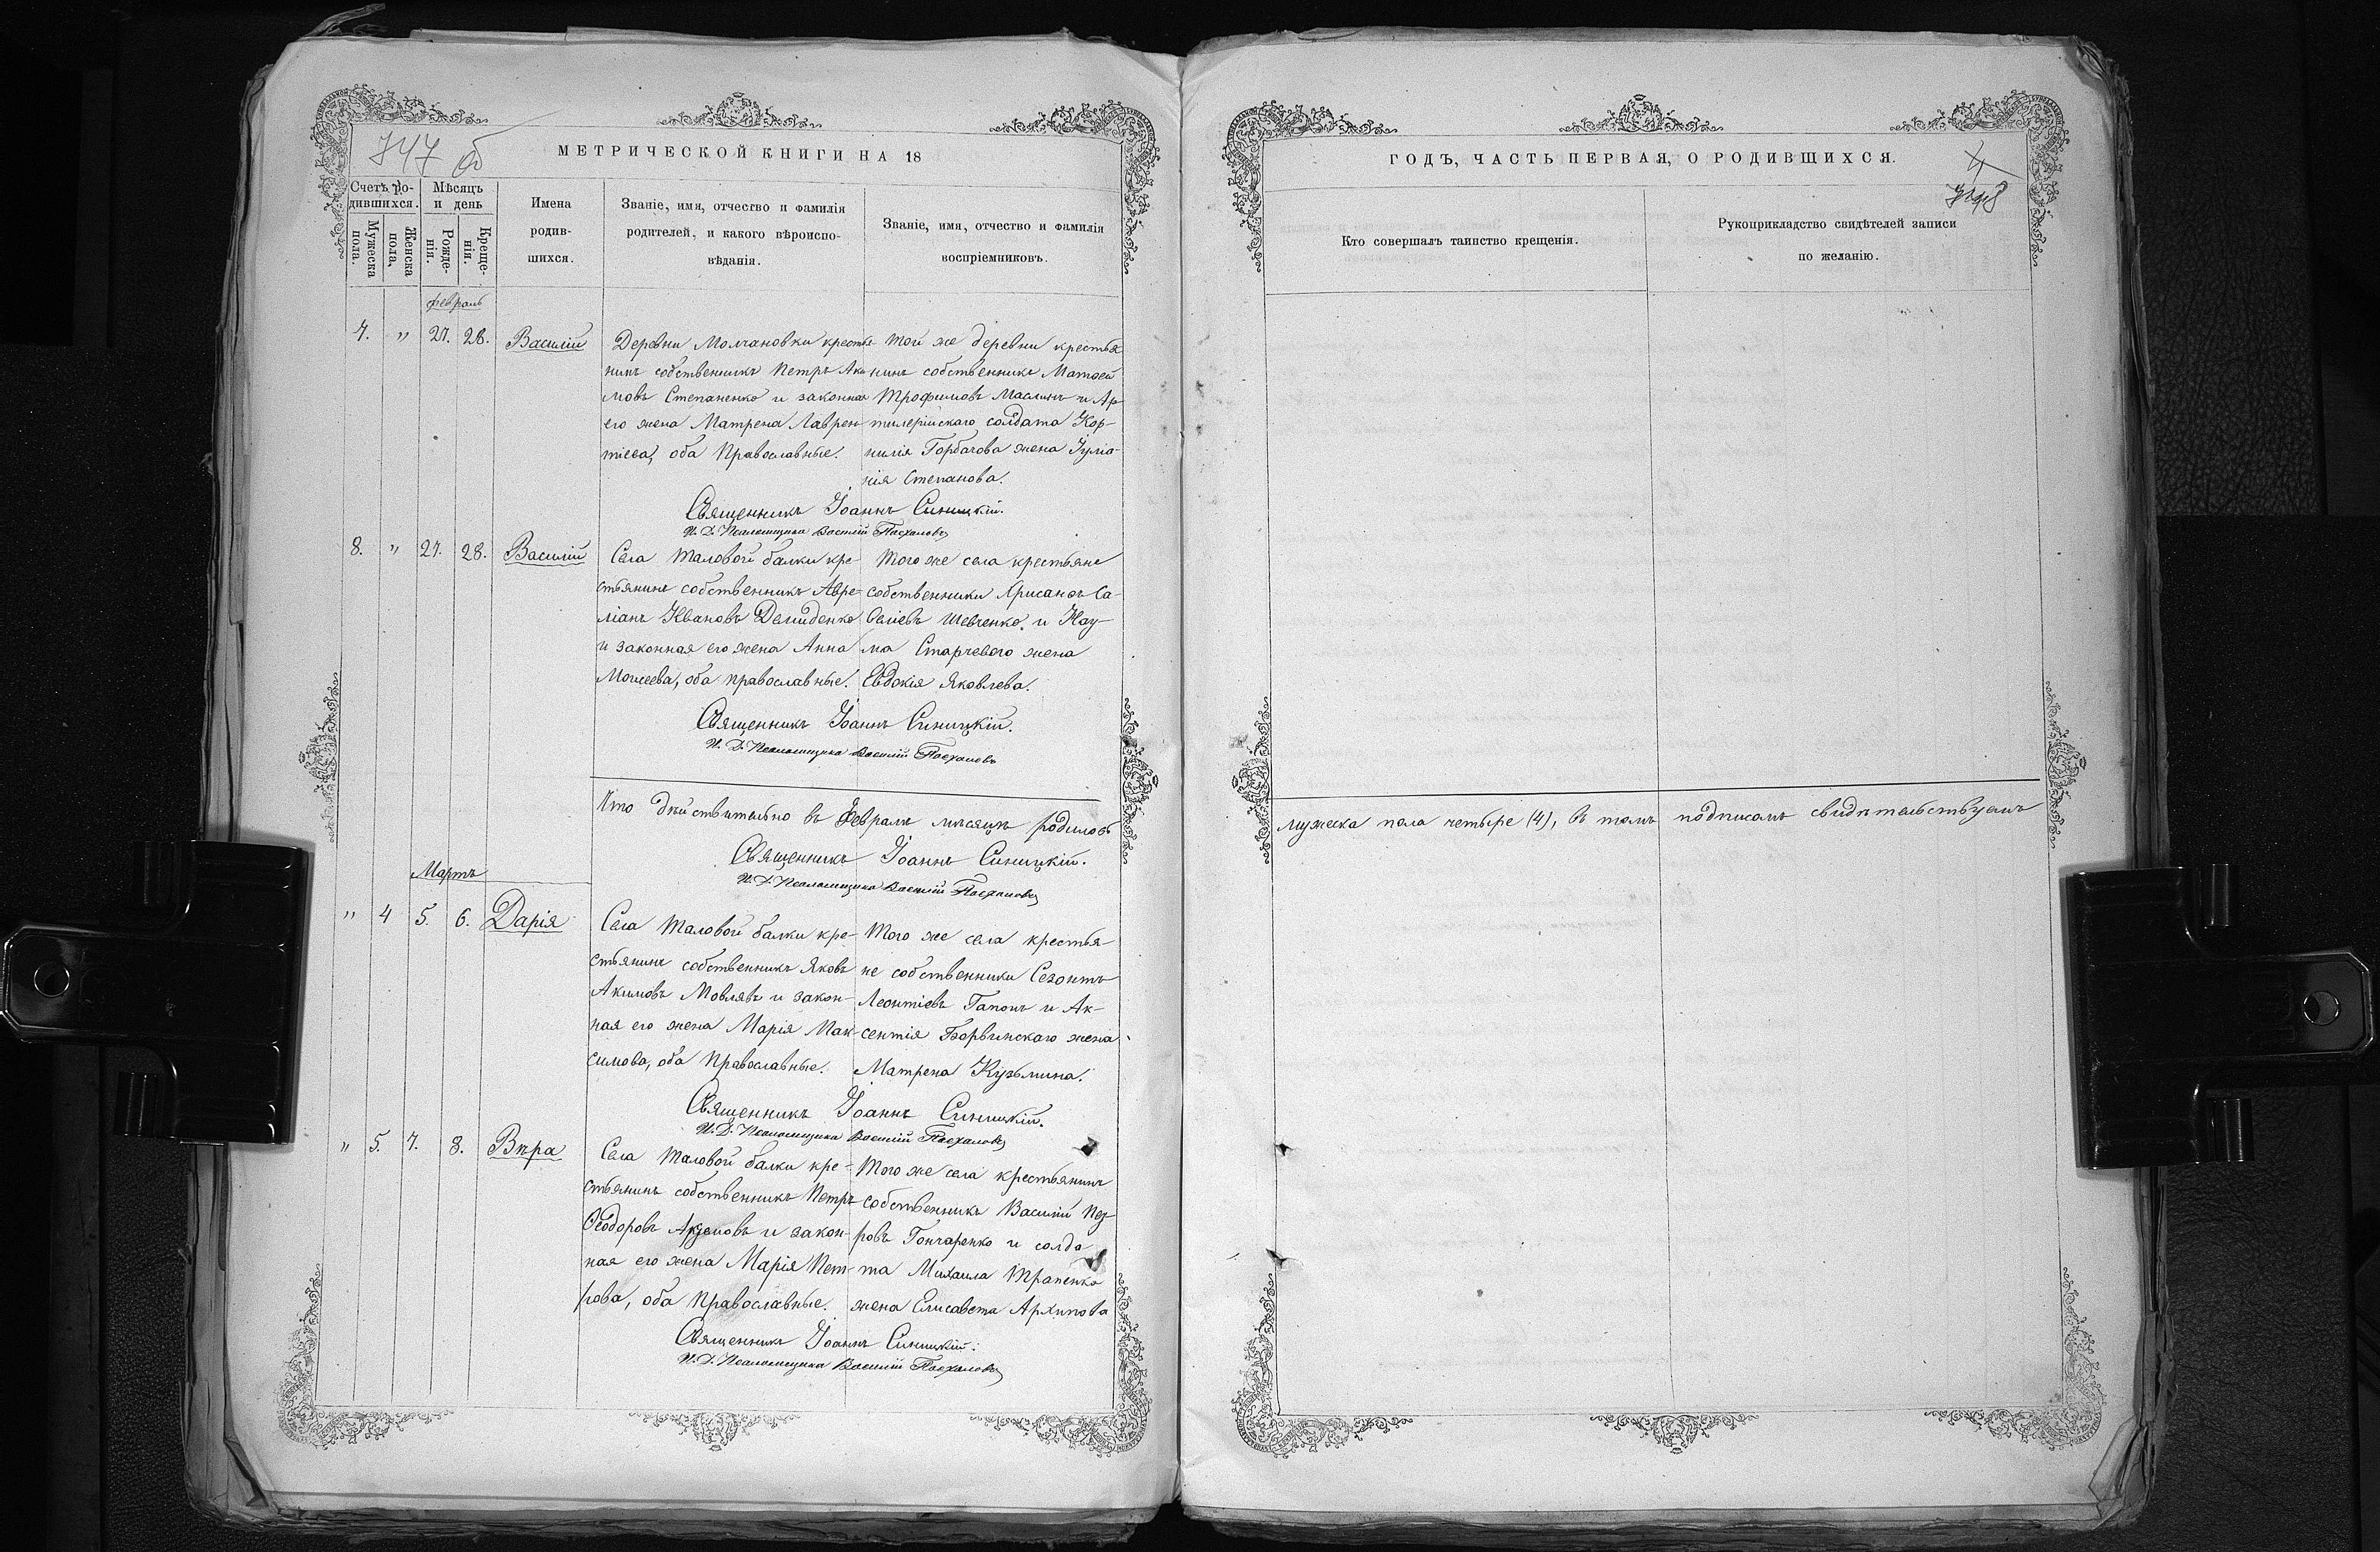 747 об
МЕТРИЧЕСКОЙ КНИГИ НА 18
Счетъ ро-
дившихся.
Мужеска
пола.
Женска
пола.
Мѣсяцъ
и день
Рожде-
нія.
Креще-
нія.
Имена
родив-
шихся.
Званіе, имя, отчество и фамилія
родителей, и какого вѣроиспо-
вѣданія.
Званіе, имя, отчество и фамилія
воспріемниковъ.
февраль
7. " 27. 28. Василій
Деревни Молчановки кресть-
нинъ собственникъ Петръ Аки-
мовъ Степаненко и законная
его жена Матрена Лаврен-
тіева, оба Православные.
Той же деревни крестья-
нинъ собственникъ Матѳей
Трофимовъ Маслинъ и Ар-
тилерійскаго солдата Кор-
нилія Горбачова жена Іулiа-
нія Степанова.
Священникъ Іоаннъ Синицкій.
И. Д. Псаломщика Василій Пасхаловъ
8. " 27. 28. Василій
Села Таловой балки кре-
стьянинъ собственникъ Авре-
ліанъ Ивановъ Демиденко
и законная его жена Анна
Моисеева, оба православные.
Того же села крестьяне
собственники Хрисанѳъ Са-
веліевъ Шевченко и Нау-
ма Старчеваго жена
Евдокія Яковлева.
Священникъ Іоаннъ Синицкій.
И. Д. Псаломщика Василій Пасхаловъ
Что дѣйствительно въ Февралѣ мѣсяцѣ родилось
Священникъ Іоаннъ Синицкій.
И. Д. Псаломщика Василій Пасхаловъ
Мартъ
" 4 5. 6. Дарія
Села Таловой балки кре-
стьянинъ собственникъ Яковъ
Акимовъ Мовлявъ и закон-
ная его жена Марія Мак-
симова, оба Православные.
Того же села крестья-
не собственники Созонтъ
Леонтіевъ Гапонъ и Ак-
сентія Борвинскаго жена
Матрена Кузьмина.
Священникъ Іоаннъ Синицкій.
И. Д. Псаломщика Василій Пасхаловъ
" 5. 7. 8. Вѣра
Села Таловой балки кре-
стьянинъ собственникъ Петръ
Ѳеодоровъ и закон-
ная его жена Марія Пет-
рова, оба Православные.
Того же села крестьянинъ
собственникъ Василій Пет-
ровъ Гончаренко и солда-
та Михаила Трапенко
жена Елисавета Архипова
Священникъ Іоаннъ Синицкій.
И. Д. Псаломщика Василій Пасхаловъ
ГОДЪ, ЧАСТЬ ПЕРВАЯ, О РОДИВШИХСЯ.
Кто совершалъ таинство крещенія.
Рукоприкладство свидѣтелей записи
по желанію.
мужеска пола четыре (4), въ томъ подписомъ свидѣтельствуемъ